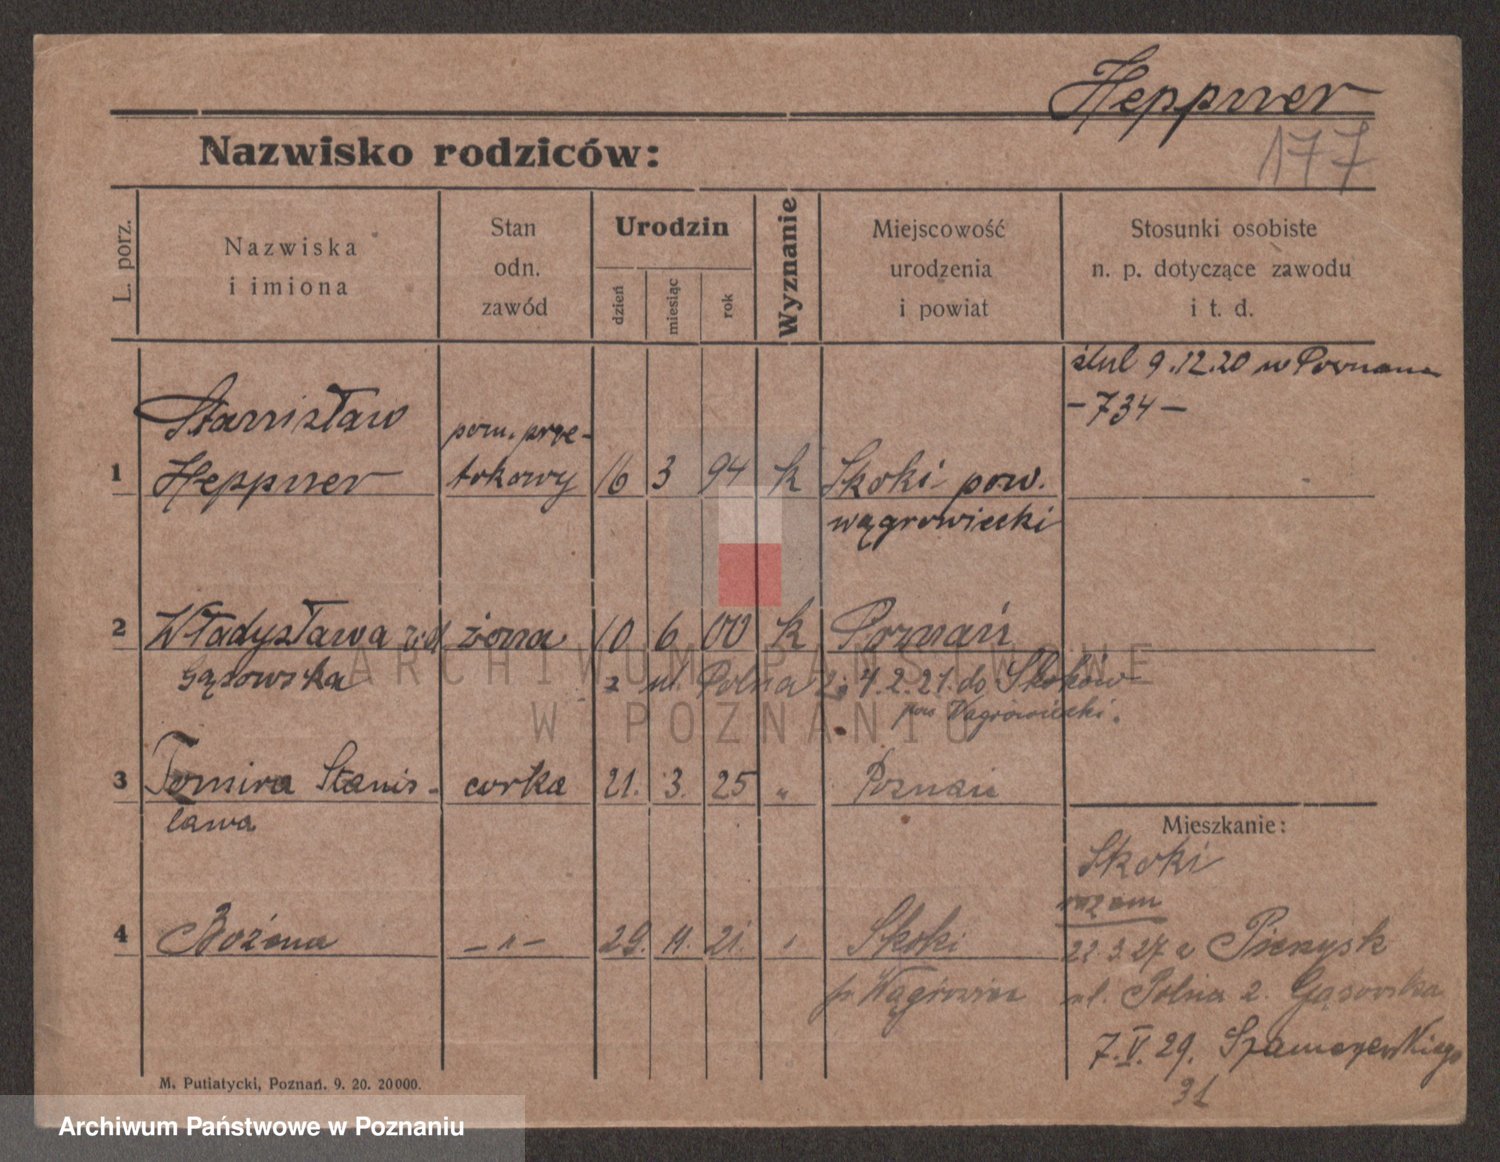 Heppner
177
Nazwisko rodziców:
L. porz.
Nazwiska
i imiona
Stan
odn.
zawód
Urodzin
dzień
miesiąc
rok
Wyznanie
Miejscowość
urodzenia
i powiat
Stosunki osobiste
n. p. dotyczące zawodu
i t. d.
ślub 9.12.20 w Poznaniu
-734-
1 Stanisław
Heppner
pom. prze-
tokowy
16 3 94 k Skoki pow.
wągrowiecki
2 Władysława żona 10 6 00 k Poznań
Gąsowska
z ul. Polna 2; 4.2.21. do Skoków
pow Wągrowiecki.
3 Tomira Stanis- corka 21. 3. 25 " Poznań
ława
4 Bożena -"- 29. 11. 21. " Skoki
p. Wągrowiec
Mieszkanie:
Skoki
razem
22.3.27 z
ul. Polna 2. Gąsowska
7.V.29.
31
M. Putiatycki, Poznań. 9. 20. 20000.
ARCHIWUM PAŃSTWOWE
W POZNANIU
Archiwum Państwowe w Poznaniu